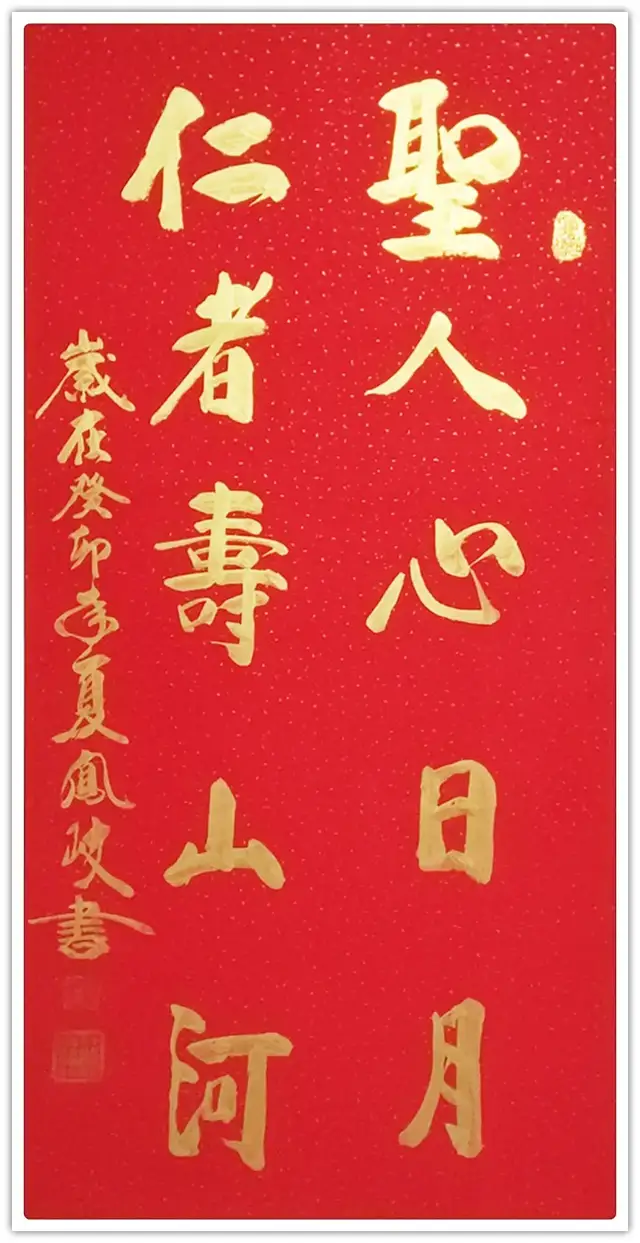 聖人心日月
仁者壽山河
歲在癸卯年夏鳳政書